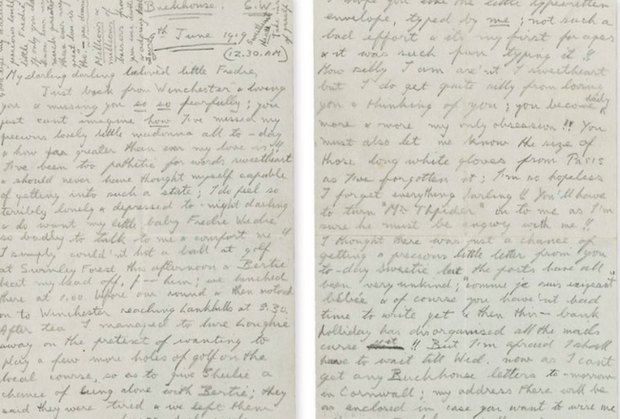 Buckhouse. S.W.
th June 1919.
(12.30. A.M.)
My darling darling beloved little Fredie,
Just back from Winchester & loving
you & missing you so so fearfully; you
just cant imagine how I've missed my
precious lovely little madonna all to-day
& how far greater than ever my love is!!
I've been too pathetic for words sweetheart
& should never have thought myself capable
of getting into such a state; I do feel so
terribly lonely & depressed to-night darling
& do want my little baby Fredie
so badly to talk to me & comfort me!!
I simply could'nt hit a ball at golf
at Swinley Forest this afternoon & Bertie
beat my head off, f— him; we lunched
there at 1.00. before our round & then motored
on to Winchester reaching Lankhills at 5.30.
After tea I managed to lure Loughie
away on the pretext of wanting to
play a few more holes of golf on the
local course, so as to give Sheilie a
chance of being alone with Bertie; they
said they were tired & we left them
you the little typewritten
envelope, typed by me; not such a
bad effort & its my first for ages
& it was such fun typing it!!
How silly I am are'nt I sweetheart
but I do get quite silly from loving
you & thinking of you; you become daily
more & more my only obsession!! You
must also let me know the size of
those long white gloves from Paris
as I've forgotten it; I'm so hopeless
I forget everything darling!! You'll have
to turn "Mr Thpider" on to me as I'm
sure he must be angwy with me!!
I thought there was just a chance of
getting a precious little letter from you
to-day sweetie but the posts have all
been very unkind,
& of course you have'nt had
time to write yet & then this bank
holliday has disorganised all the mails
curse !! But I'm afraid I shall
have to wait till Wed. now as I can't
get any Buckhouse letters to-morrow
in Cornwall; my address there will be
on enclosed in case you want to wire me